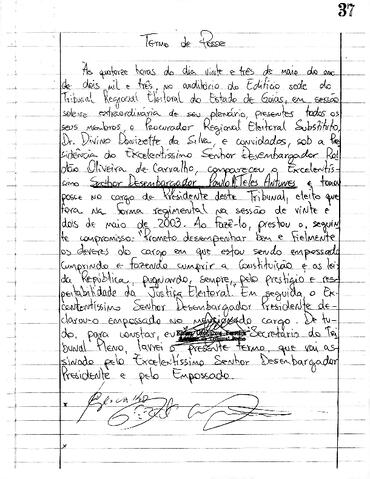 37
Termo de Posse
Às quatorze horas do dia vinte e três de maio do ano
de dois mil e três, no auditório do Edifício sede do
Tribunal Regional Eleitoral do Estado de Goiás, em sessão
solene extraordinária de seu plenário, presentes todos os
seus membros, o Procurador Regional Eleitoral Substituto,
Dr. Divino Donizette da Silva, e convidados, sob a Pre
sidência do Excelentíssimo Senhor Desembargador Rol
dão Oliveira de Carvalho, compareceu o Excelentís-
simo Senhor Desembargador Paulo M. Teles Antunes e tomou
posse no cargo de Presidente deste Tribunal, eleito que
fora na forma regimental na sessão de vinte e
dois de maio de 2003. Ao fazê-lo, prestou o seguin
te compromisso: Prometo desempenhar bem e fielmente
os deveres do cargo em que estou sendo empossado
cumprindo e fazendo cumprir a Constituição e as leis
da República, pugnando, sempre, pelo prestígio e res-
peitabilidade da Justiça Eleitoral. Em seguida, o Ex-
celentíssimo Senhor Desembargador Presidente de-
clarou-o empossado no mencionado cargo. De tu-
do, para constar, eu Secretário do Tri
bunal Pleno, lavrei o presente termo, que vai as-
sinado pelo Excelentíssimo Senhor Desembargador
Presidente e pelo Empossado.